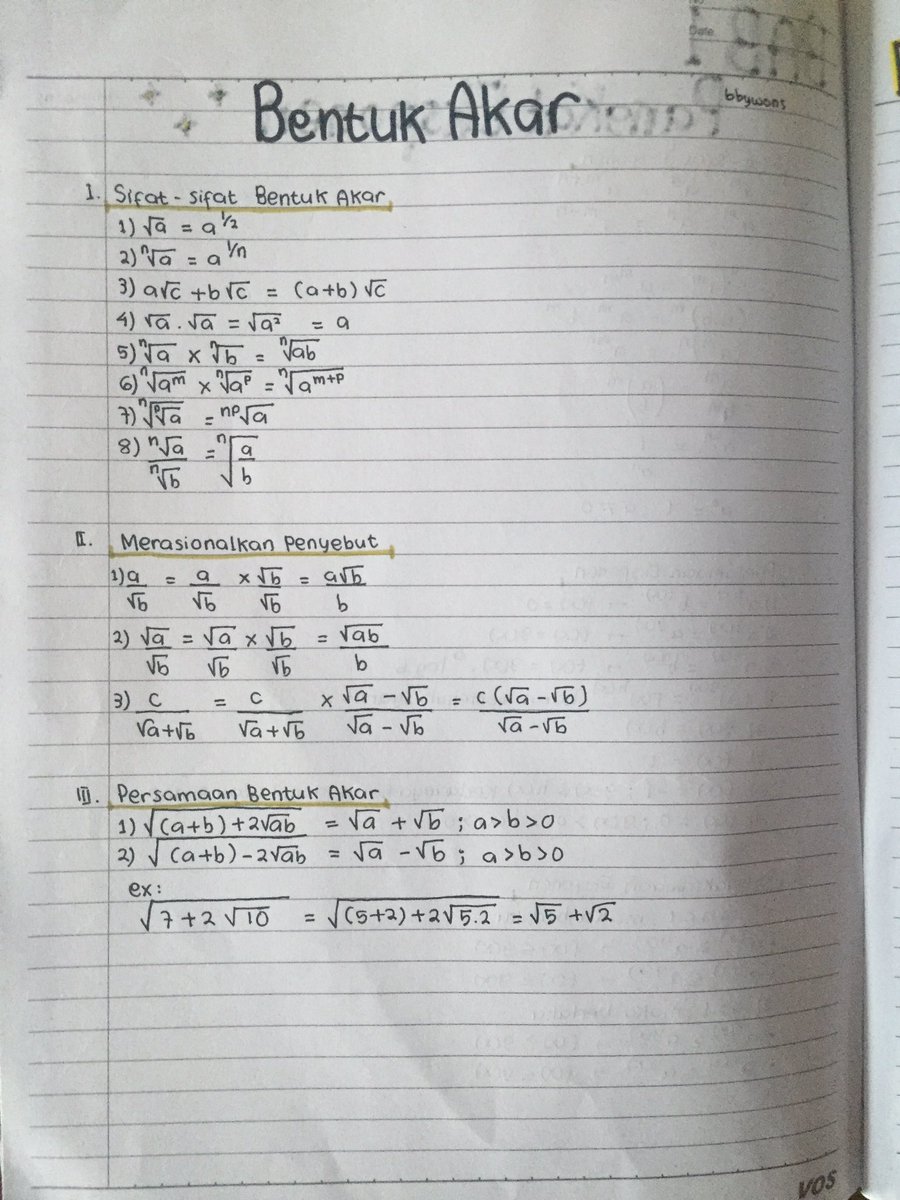 Date
bbywons
Bentuk Akar
I. Sifat - sifat Bentuk Akar
1) √a = a^1/2
2) ⁿ√a = a^1/n
3) a√c + b√c = (a+b)√c
4) √a . √a = √a² = a
5) ⁿ√a × ⁿ√b = ⁿ√ab
6) ⁿ√a^m × ⁿ√a^p = ⁿ√a^m+p
7) ⁿ√ᵖ√a = ⁿᵖ√a
8) ⁿ√a / ⁿ√b = ⁿ√a/b
II. Merasionalkan Penyebut
1) a/√b = a/√b × √b/√b = a√b/b
2) √a/√b = √a/√b × √b/√b = √ab/b
3) c/√a+√b = c/√a+√b × √a-√b/√a-√b = c(√a-√b)/√a-√b
III. Persamaan Bentuk Akar
1) √(a+b)+2√ab = √a + √b ; a>b>0
2) √(a+b)-2√ab = √a - √b ; a>b>0
ex:
√7+2√10 = √(5+2)+2√5.2 = √5 + √2
VOS